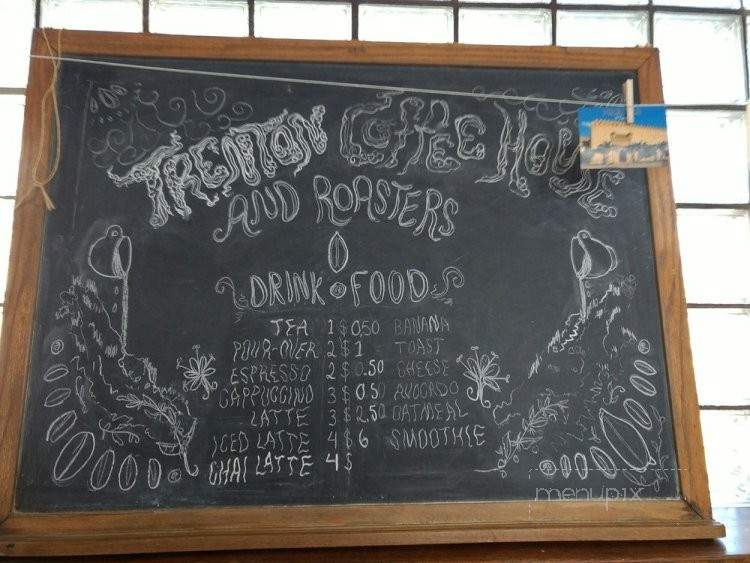 TRENTON COFFEE HOUSE
AND ROASTERS
DRINK FOOD
TEA 1 $ 0.50 BANANA
POUR-OVER 2 $ 1 TOAST
ESPRESSO 2 $ 0.50 CHEESE
CAPPUCCINO 3 $ 0.50 AVOCADO
LATTE 3 $ 2.50 OATMEAL
ICED LATTE 4 $ 6 SMOOTHIE
CHAI LATTE 4 $
menupix